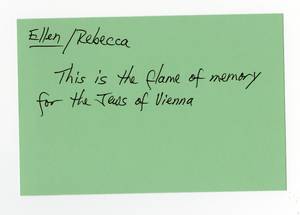 Ellen/Rebecca
This is the flame of memory
for the Jews of Vienna